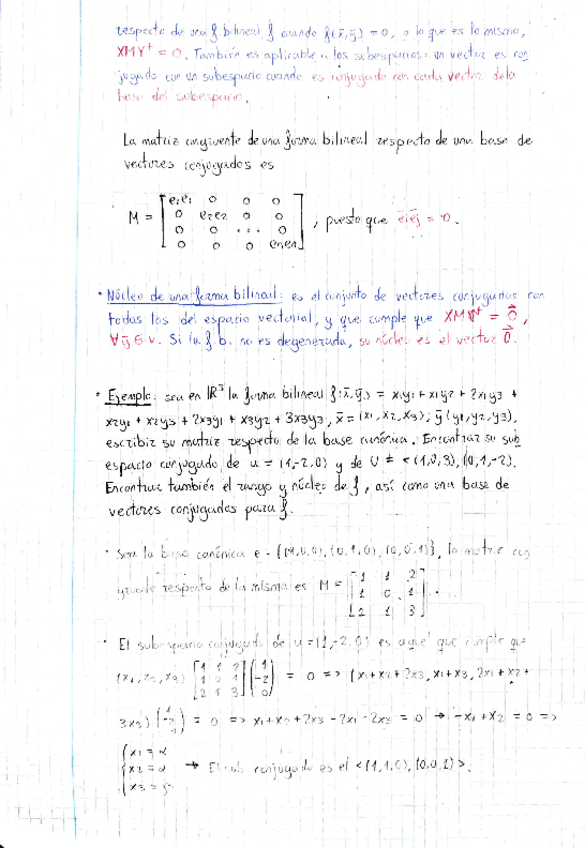 respecto de una f. bilineal f cuando f(x̄,ȳ) = 0, o lo que es lo mismo,
XMYᵗ = 0. También es aplicable a los subespacios: un vector es con
jugado con un subespacio cuando es conjugado con cada vector de la
base del subespacio.
La matriz congruente de una forma bilineal respecto de una base de
vectores conjugados es
M = [e₁e₁ 0 0 0
0 e₂e₂ 0 0
0 0 ... 0
0 0 0 eₙeₙ] , puesto que eiej = 0.
• Núcleo de una forma bilineal: es el conjunto de vectores conjugados con
todos los del espacio vectorial, y que cumple que XMYᵗ = 0⃗,
∀ȳ∈V. Si la f.b. no es degenerada, su núcleo es el vector 0⃗.
• Ejemplo: sea en ℝ³ la forma bilineal f(x̄,ȳ) = x₁y₁ + x₁y₂ + 2x₁y₃ +
x₂y₁ + x₂y₃ + 2x₃y₁ + x₃y₂ + 3x₃y₃, x̄ = (x₁, x₂, x₃); ȳ(y₁,y₂,y₃),
escribir su matriz respecto de la base canónica. Encontrar su sub
espacio conjugado de u = (1,-2,0) y de U = <(1,0,3),(0,1,-2)>.
Encontrar también el rango y núcleo de f, así como una base de
vectores conjugados para f.
• Sea la base canónica e = {(1,0,0),(0,1,0),(0,0,1)}, la matriz con
gruente respecto de la misma es M = [1 1 2
1 0 1
2 1 3].
• El subespacio conjugado de u = (1,-2,0) es aquel que cumple que
(x₁,x₂,x₃) [1 1 2
1 0 1
2 1 3] (1
-2
0) = 0 => (x₁+x₂+2x₃, x₁+x₃, 2x₁+x₂+
3x₃) = 0 => x₁+x₂+2x₃-2x₁-2x₃ = 0 → -x₁+x₂ = 0 =>
{x₁ = α
x₂ = α → El sub. conjugado es el <(1,1,0),(0,0,1)>.
x₃ =